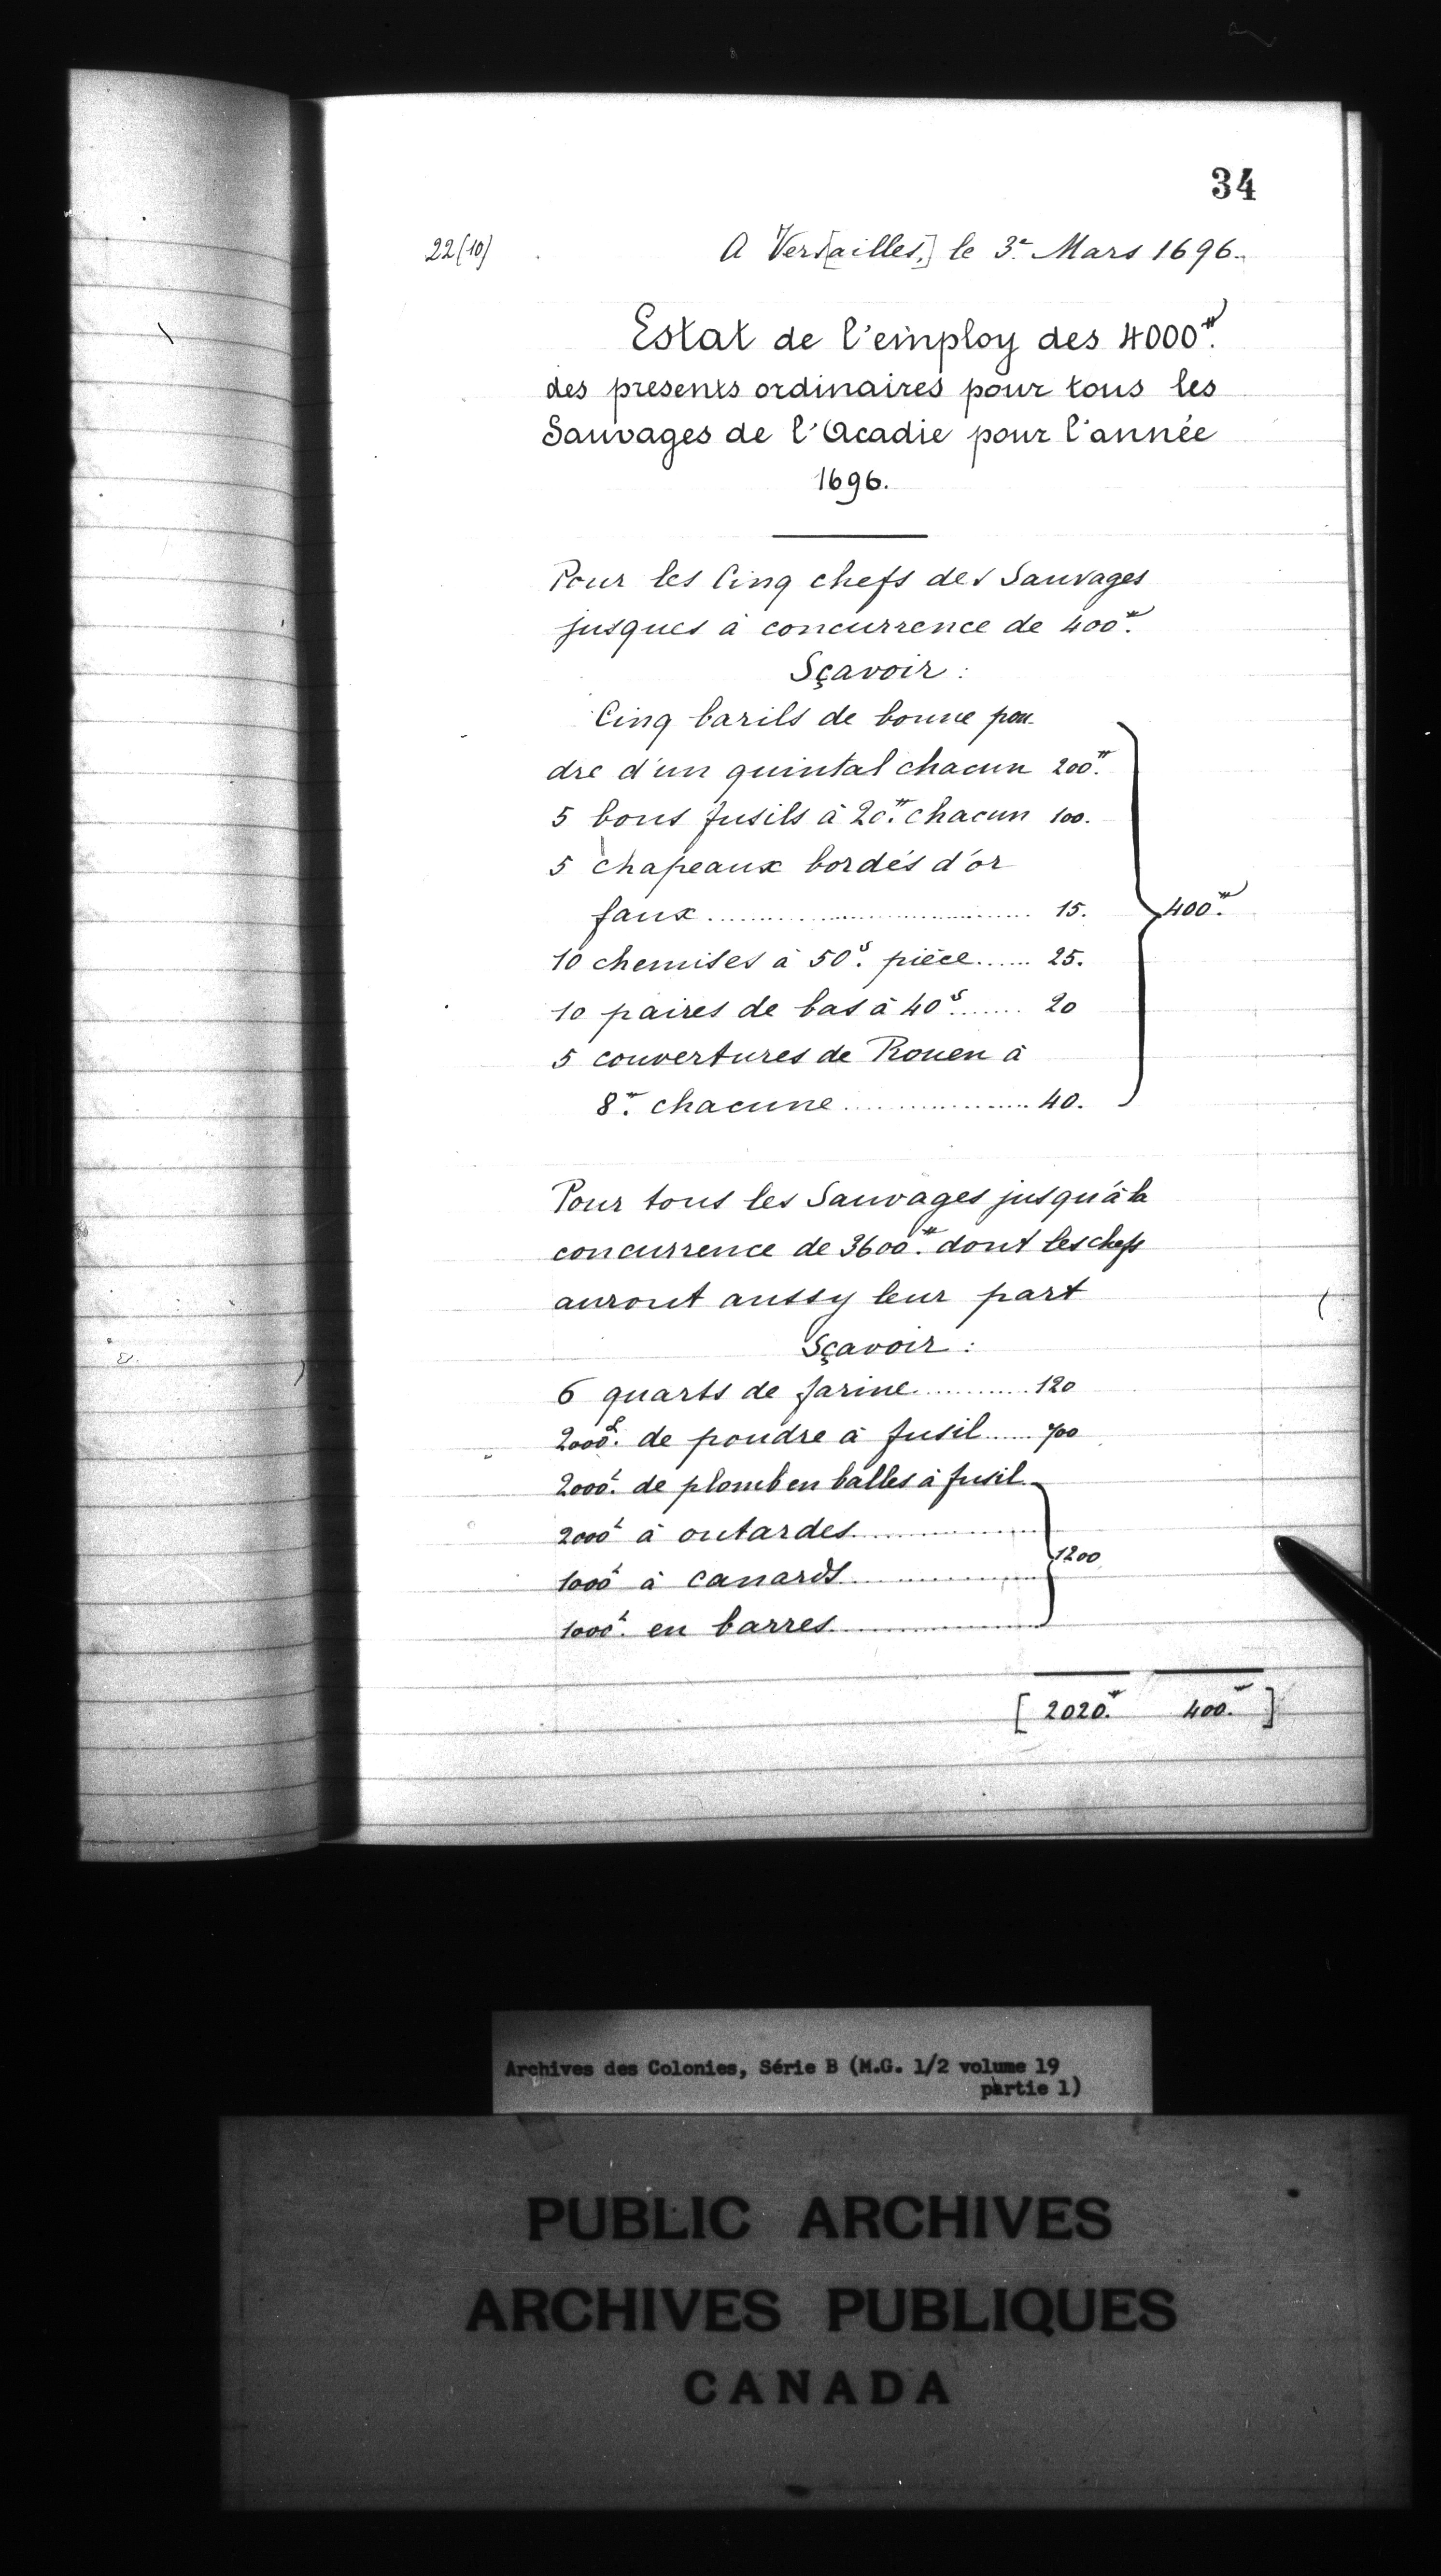 34
22(10)
A Vers[ailles,] le 3e Mars 1696.
Estat de l'employ des 4000#.
des presents ordinaires pour tous les
Sauvages de l'Acadie pour l'année
1696.
Pour les Cinq chefs des Sauvages
jusques à concurrence de 400#.
Sçavoir :
Cinq barils de bonne pou
dre d'un quintal chacun 200#.
5 bons fusils à 20#. chacun 100.
5 chapeaux bordés d'or
faux .......... 15. 400#.
10 chemises à 50s. pièce...... 25.
10 paires de bas à 40s....... 20
5 couvertures de Rouen à
8#. chacune .......... 40.
Pour tous les Sauvages jusqu'à la
concurrence de 3600#. dont les chefs
auront aussy leur part
Sçavoir :
6 quarts de farine .......... 120
2000L. de poudre à fusil ...... 700
2000L. de plomb en balles à fusil
2000L à outardes ..........
1200
1000L à canards ..........
1000L. en barres ..........
[ 2020.# 400.# ]
Archives des Colonies, Série B (M.G. 1/2 volume 19
partie 1)
PUBLIC ARCHIVES
ARCHIVES PUBLIQUES
CANADA